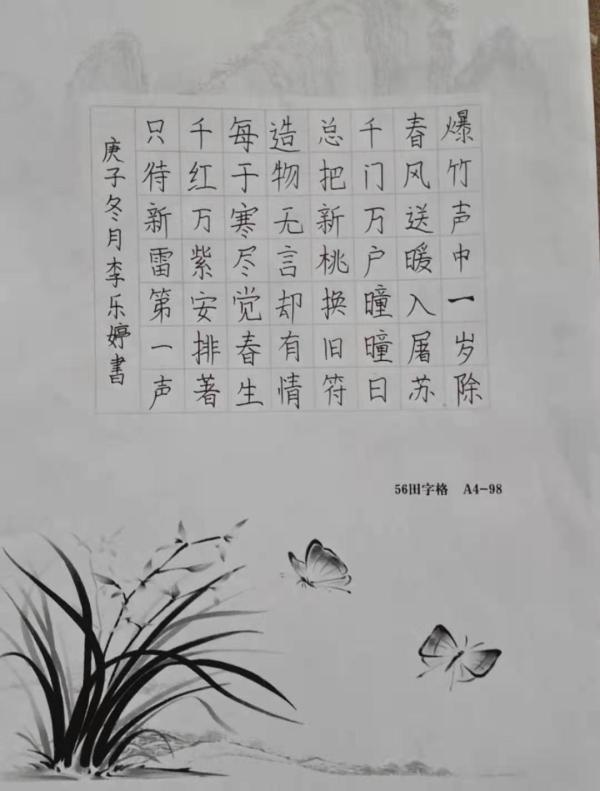 爆竹声中一岁除
春风送暖入屠苏
千门万户曈曈日
总把新桃换旧符
造物无言却有情
每于寒尽觉春生
千红万紫安排著
只待新雷第一声
庚子冬月李乐婷書
56田字格 A4-98